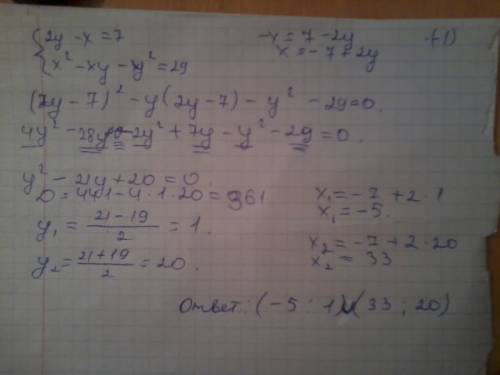 {2y - x = 7
{x² - xy - y² = 29
-x = 7 - 2y (-1)
x = -7 + 2y
(2y - 7)² - y(2y - 7) - y² - 29 = 0.
4y² - 28y - 2y² + 7y - y² - 29 = 0.
y² - 21y + 20 = 0.
D = 441 - 4 · 1 · 20 = 361
y₁ = (21 - 19)/2 = 1.
y₂ = (21 + 19)/2 = 20.
x₁ = -7 + 2 · 1
x₁ = -5.
x₂ = -7 + 2 · 20
x₂ = 33
Ответ: (-5 : 1) и (33 ; 20)